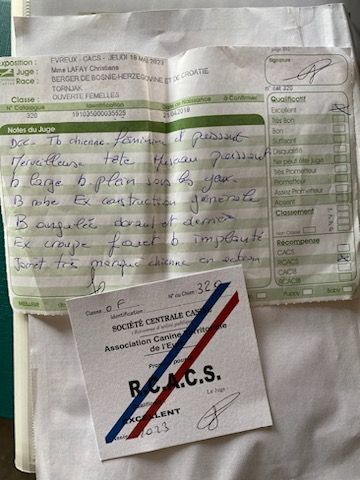 Exposition : EVREUX - CACS - JEUDI 18 MAI 2023
Juge : Mme LAFAY Christiane
Race : BERGER DE BOSNIE-HERZEGOVINE ET DE CROATIE
TORNJAK
Classe : OUVERTE FEMELLES
Signature
N° Catalogue Identification Date de Naissance à Confirmer
320 191035000035525 21.04.2018
n° cat 320
Notes du Juge
Tb chienne féminine et puissant
Merveilleuse tête Museau puissant
b large b plein sous les yeux
B robe Ex construction générale
B angulée devant et derrière
Ex croupe fouet b implanté
Jarret très marqué chienne en
Qualificatif
Excellent
Très Bon
Bon
Suffisant
Disqualifié
Ne peut être jugé
Très Prometteur
Prometteur
Assez Prometteur
Absent
Classement
Récompense
CACS
RCACS
Puppy
Baby
Classe O F N° du Chien 320
Identification
SOCIÉTÉ CENTRALE CANINE
(Reconnue d'utilité publique)
Association Canine Territoriale
de l'Eure
R.C.A.C.S.
Le Juge
EXCELLENT
2023